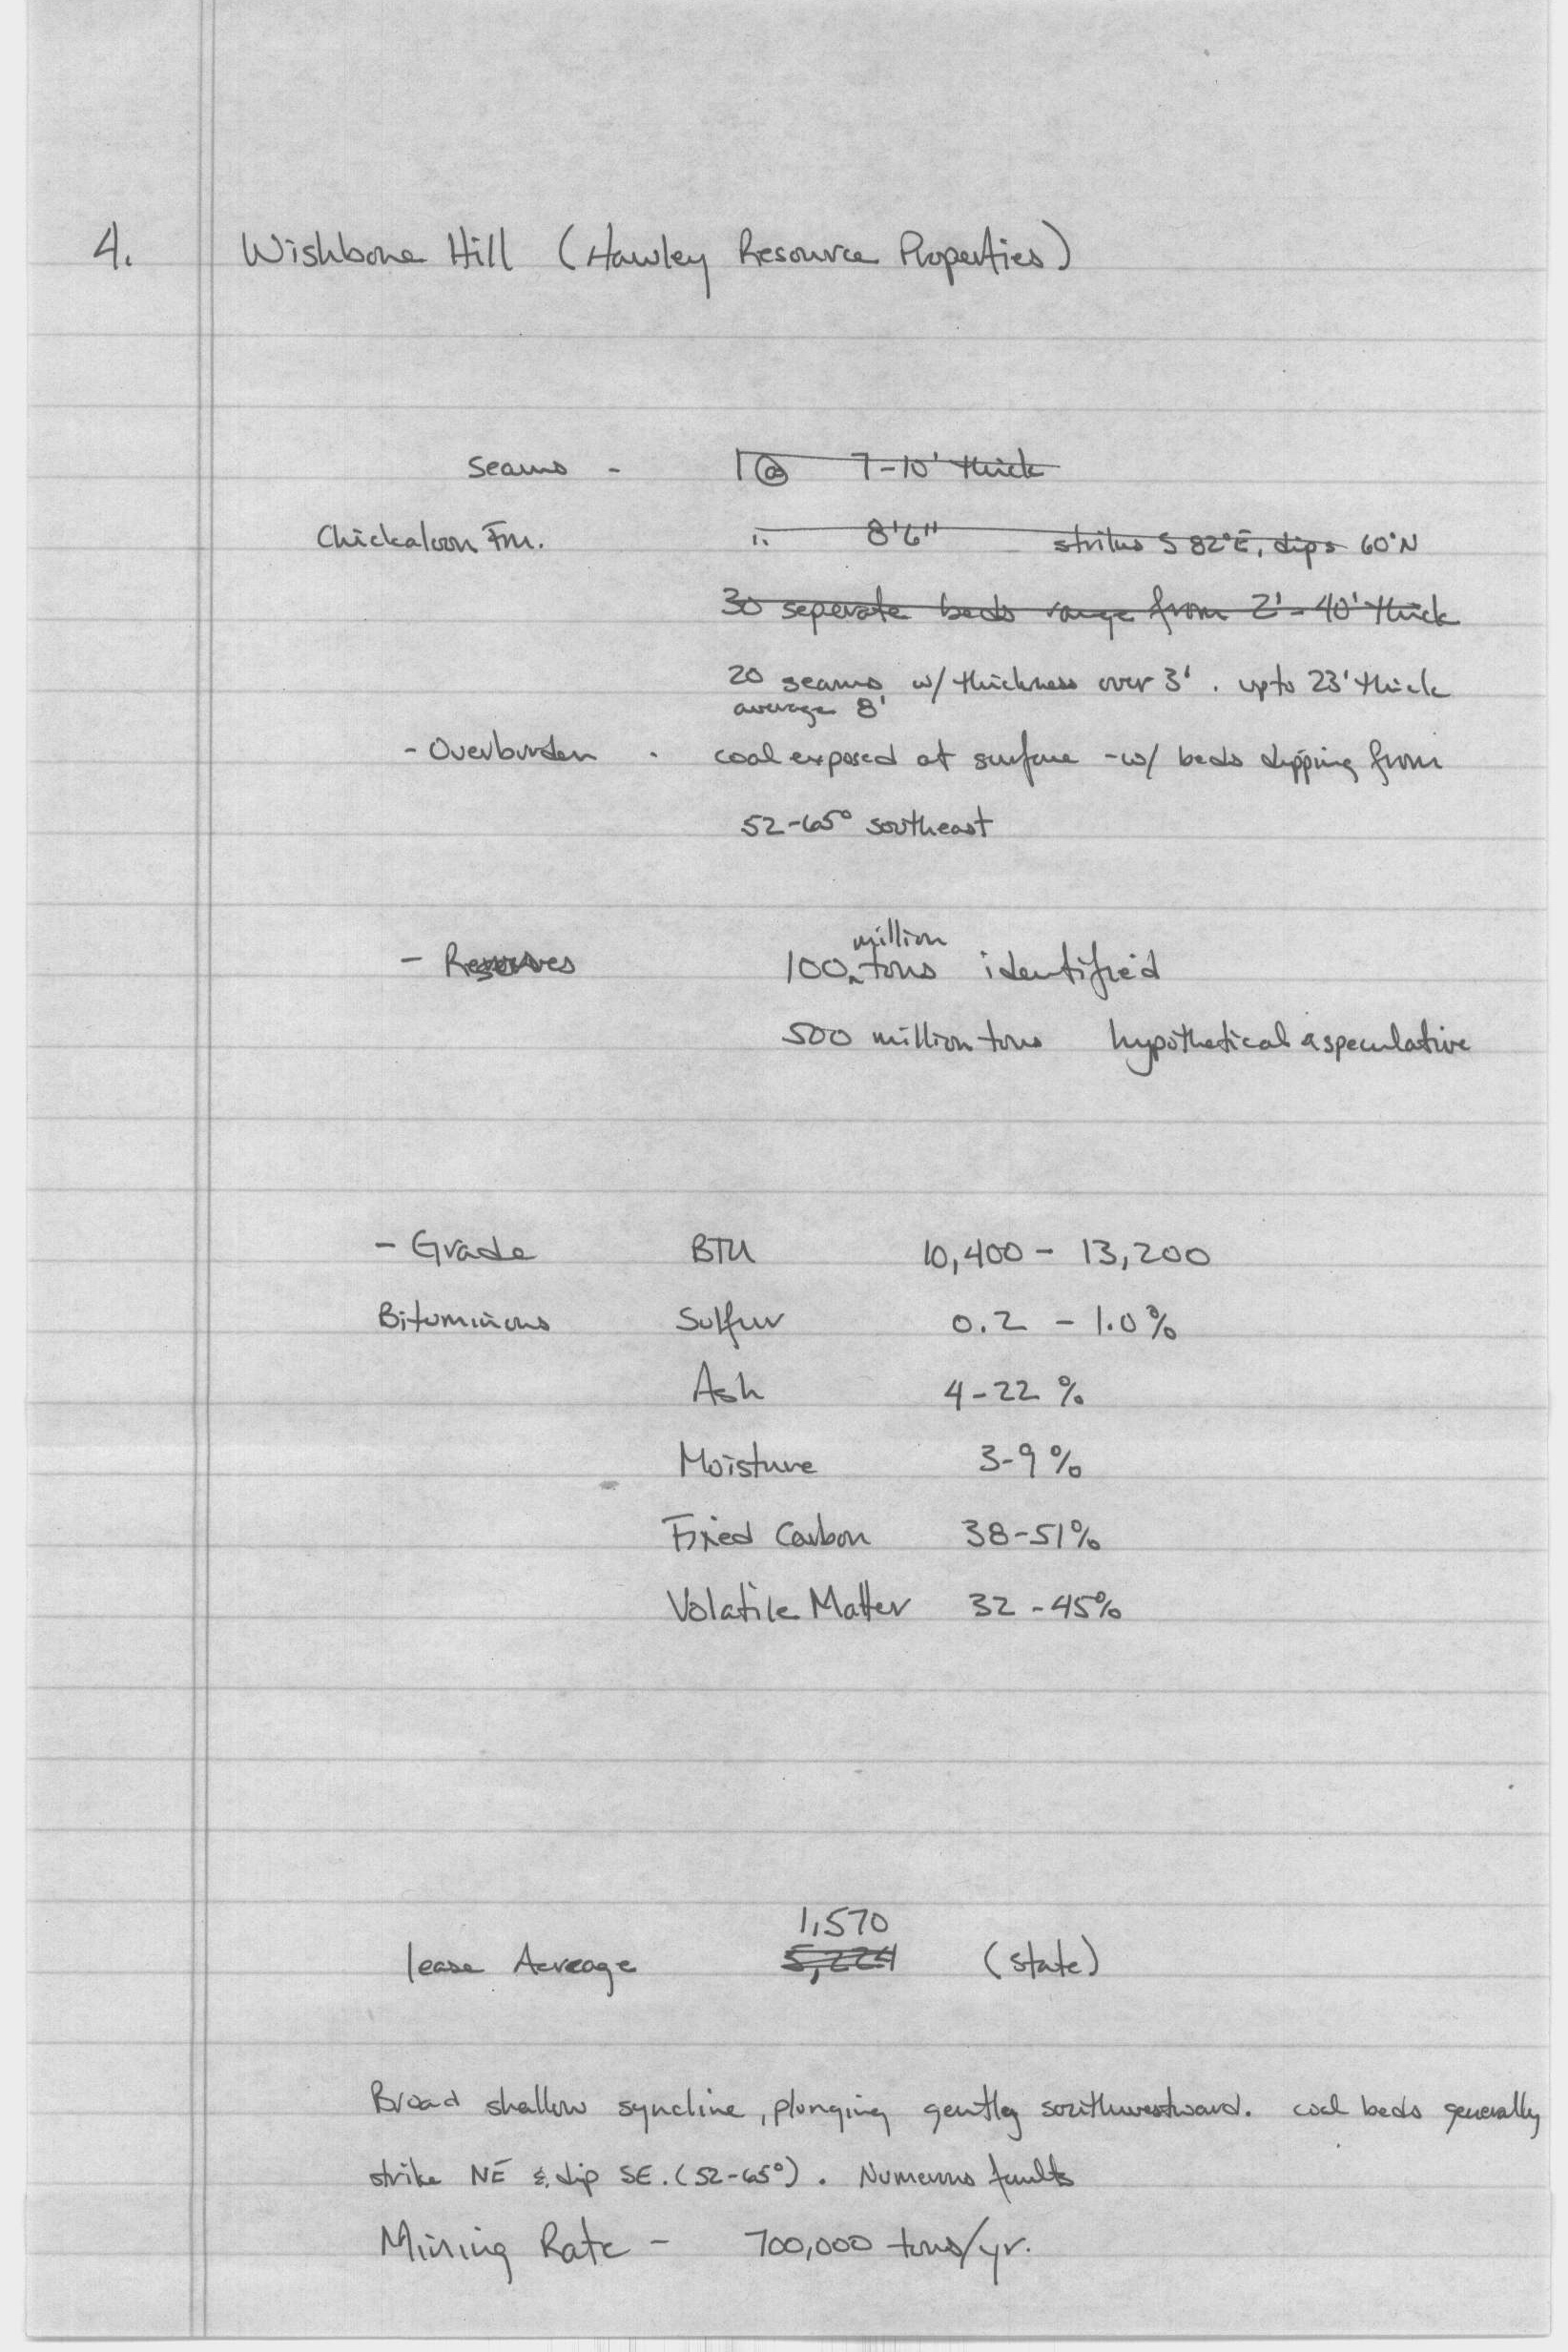 4. Wishbone Hill (Hawley Resource Properties)
Seams - 1 @ 7-10' thick
Chickaloon Fm. ". 8'6" strikes S 82°E, dips 60°N
30 seperate beds range from 2'-40' thick
20 seams w/ thickness over 3'. upto 23' thick
average 8'
- Overburden . coal exposed at surface -w/ beds dipping from
52-65° southeast
- Reserves 100 million tons identified
500 million tons hypothetical & speculative
- Grade BTU 10,400 - 13,200
Bituminous Sulfur 0.2 - 1.0%
Ash 4-22 %
Moisture 3-9 %
Fixed Carbon 38-51%
Volatile Matter 32 -45%
1,570
lease Acreage 5,224 (state)
Broad shallow syncline, plunging gently southwestward. coal beds generally
strike NE & dip SE. (52-65°). Numerous faults
Mining Rate - 700,000 tons/yr.